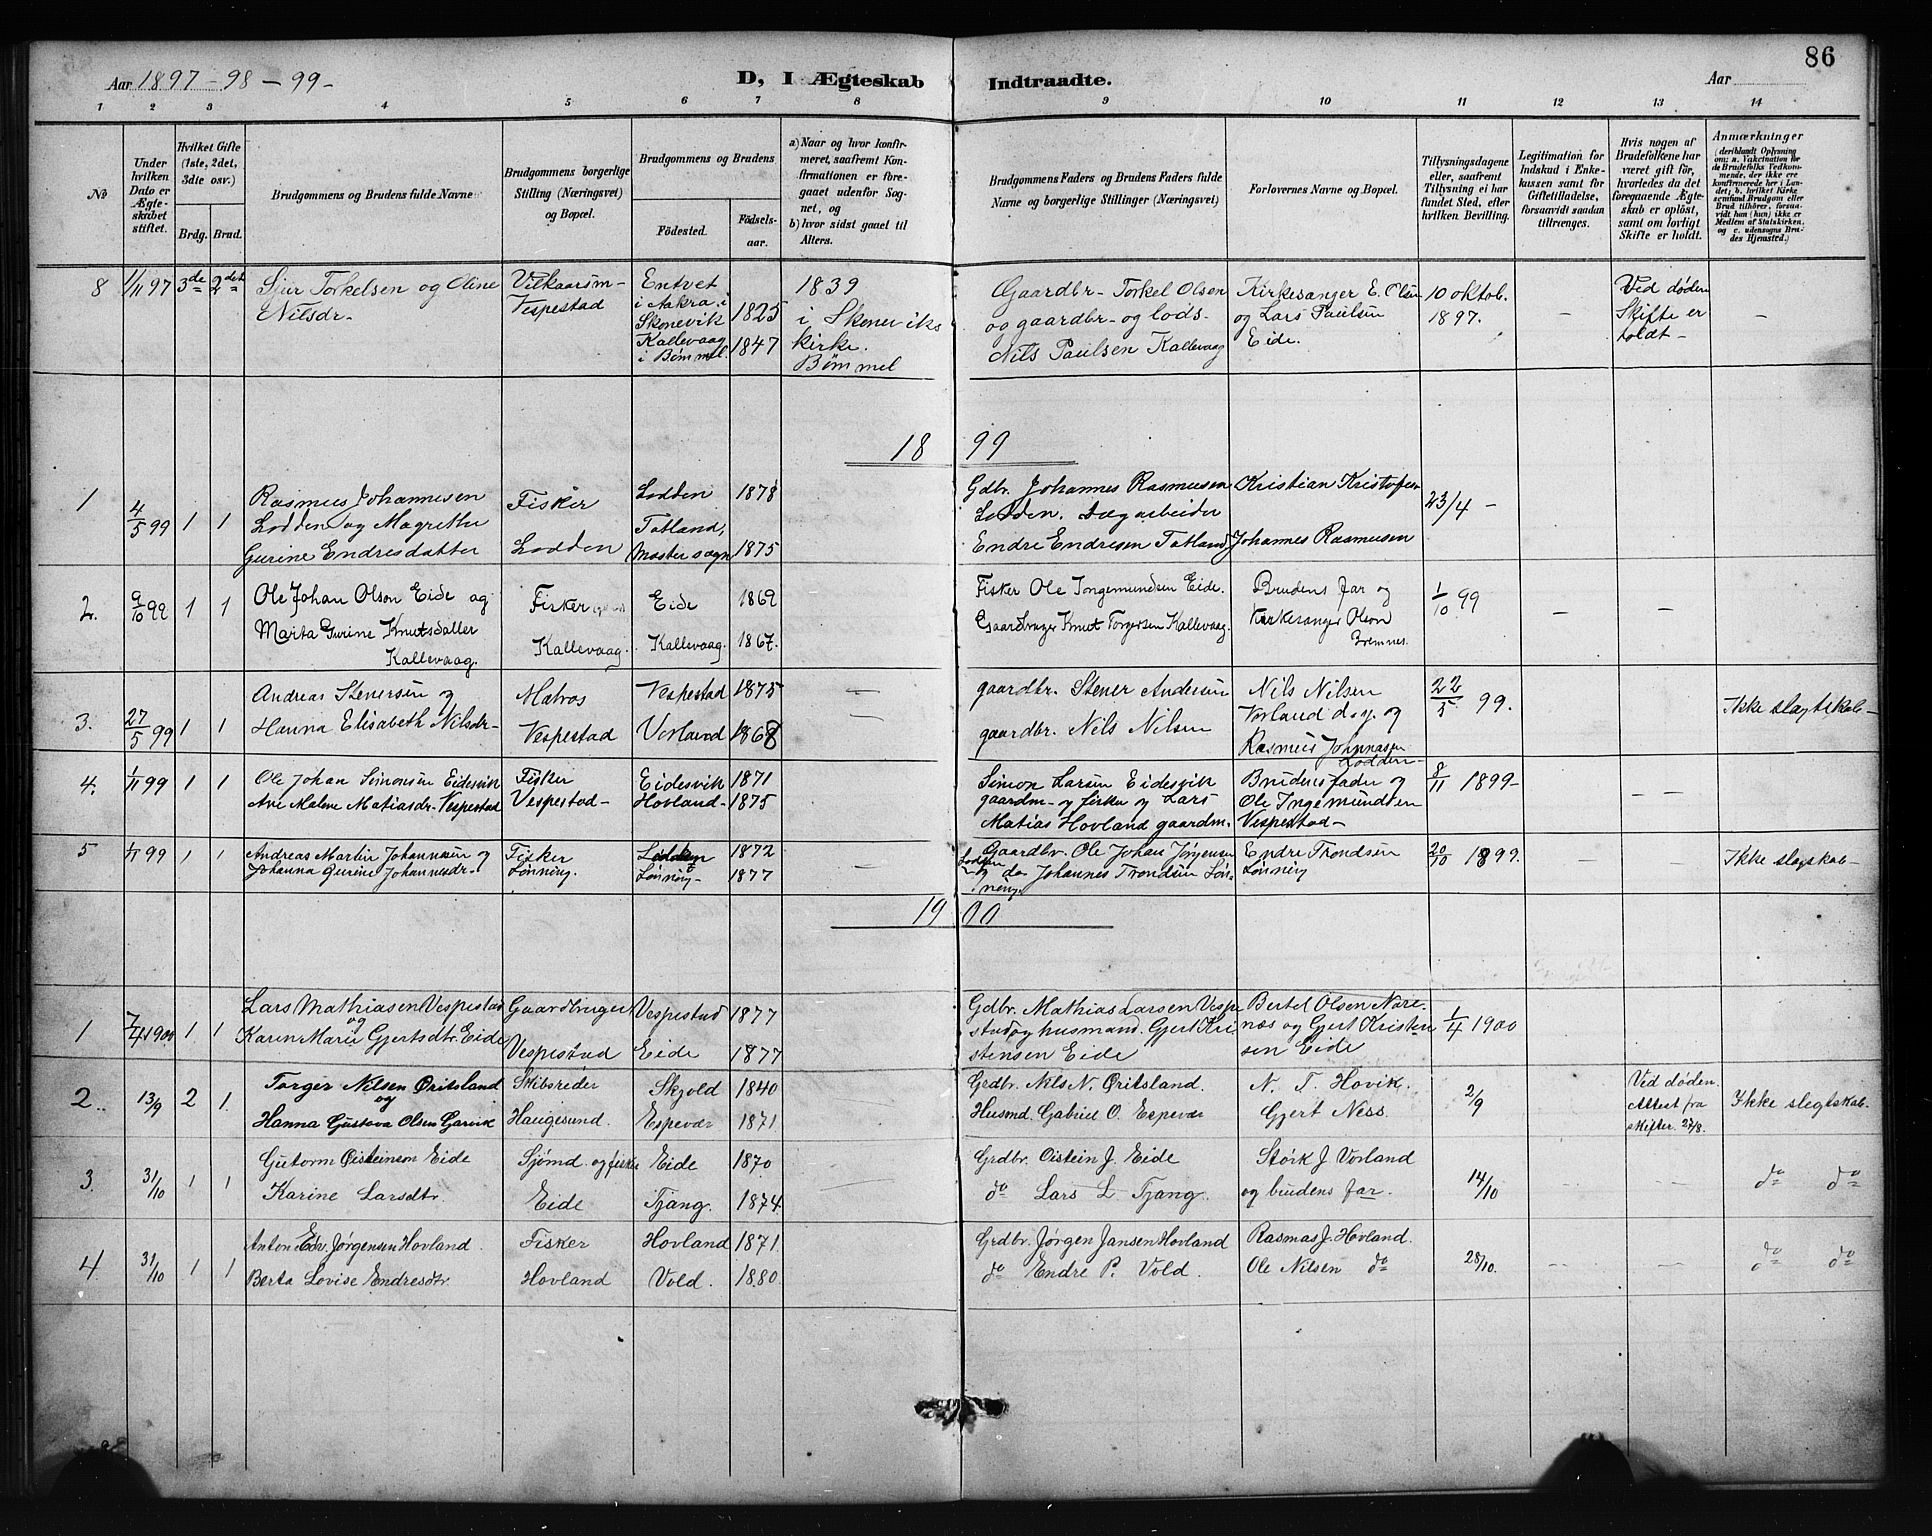 86
Aar 1897-98-99-
D, I Ægteskab Indtraadte.
Aar
1 2 3 4 5 6 7 8 9 10 11 12 13 14
No
Under hvilken Dato er Ægteskabet stiftet.
Hvilket Gifte (1ste, 2det, 3die osv.)
Brdg. Brud.
Brudgommens og Brudens fulde Navne
Brudgommens borgerlige Stilling (Næringsvei) og Bopæl.
Brudgommens og Brudens
Födested.
Födselsaar.
a) Naar og hvor konfirmeret, saafremt Konfirmationen er foregaaet udenfor Sognet, og
b) hvor sidst gaaet til Alters.
Brudgommens Faders og Brudens Faders fulde Navne og borgerlige Stillinger (Næringsvei)
Forlovernes Navne og Bopæl.
Tillysningsdagene eller, saafremt Tillysning ei har fundet Sted, efter hvilken Bevilling.
Legitimation for Indskud i Enkekassen samt for Giftetilladelse, forsaavidt saadan tiltrænges.
Hvis nogen af Brudefolkene har været gift för, hvorledes da det foregaaende Ægteskab er oplöst, samt om lovligt Skifte er holdt.
Anmærkninger
(deriblandt Oplysning om: a. Vakcination for de Brudefolks Vedkommende, der ikke ere konfirmerede her i Landet; b. hvilket Kirkesamfund Brudgom eller Brud tilhörer, forsaavidt han (hun) ikke er Medlem af Statskirken, og c. udensogns Brudes Hjemsted.)
8 1/11 97 3de 2det Sjur Torkelsen og Oline Nilsdr- Vilkaarsm- Vespestad Entvet i Aakra i Skonevik 1825 Kallevaag i Bømmel 1847 1839 i Skoneviks kirke. Bømmel Gaardbr- Torkel Olsen og gaardbr- og lods- Nils Paulsen Kallevaag Kirkesanger E. Olsen og Lars Paulsen Eide. 10 oktob. 1897. - Ved døden Skifte er holdt- -
1899
1 4/5 99 1 1 Rasmus Johannesen Lodden og Magrethe Gurine Endresdatter Fisker Lodden Lodden 1878 Totland, Moster sogn 1875 Gdbr. Johannes Rasmusen Lodden. Dagarbeider Endre Endresen Totland Kristian Kristofer Johannes Rasmusen 23/4 -
2. 9/10 99 1 1 Ole Johan Olson Eide og Marta Gurine Knutsdatter Kallevaag. Fisker Kallevaag. Eide 1869 Kallevaag. 1867. Fisker Ole Ingemundsen Eide. Gaardbruger Knut Torgersen Kallevaag. Brudens far og Kirkesanger Olson Bremnes. 1/10 99 - -
3. 27/5 99 1 1 Andreas Stenersen og Hanna Elisabeth Nilsdr- Matros Vespestad Vespestad 1875 Vorland 1868 - - gaardbr. Stener Andersen gaardbr. Nils Nilsen Nils Nilsen Vorland d.y. og Rasmus Johannessen Lodden- 22/5 99. Ikke slegtskab-
4. 1/11 99 1 1 Ole Johan Simonsen Eidesvik Ane Malene Matiasdr- Vespestad Fisker Vespestad- Eidesvik 1871 Hovland- 1875 Simon Larsen Eidesvik gaardm- og fisker og Lars Matias Hovland gaardm. Brudens fader og Ole Ingemundsen Vespestad- 8/11 1899- - -
5 1/11 99 1 1 Andreas Martin Johannsen og Johanna Gurine Johannesdr- Fisker Lønning. Lodden 1872 Lønning- 1877 - Gaardbr. Ole Johan Jørgensen Lodden og do Johannes Trondsen Lønning. Endre Trondsen Lønning 20/10 1899. - - Ikke slegskab-
1900
1 7/4 1900 1 1 Lars Mathiasen Vespestad og Karen Marie Gjertsdtr. Eide Gaardbruger Vespestad Vespestad 1877 Eide 1877 Gdbr. Mathias Larsen Vespestad og husmand. Gjert Kristensen Eide Bertel Olsen Norenes og Gjert Kristensen Eide 1/4 1900
2.. 13/9 2 1. Torger Nilsen Øritsland og Hanna Gustava Olsen Garvik Skibsreder Haugesund. Skjold 1840 Espevær 1871 Grdbr. Nils N. Øritsland. Husmd. Gabriel O. Espevær N. T. Hovik. Gjert Ness. 2/9 Ved døden. Attest fra skifter. 27/8. Ikke slegtskab.
3. 31/10 1 1 Gutorm Oisteinson Eide Karine Larsdtr. Sjømd. og fisker Eide Eide 1870 Tjang. 1874. Grdbr. Oistein J. Eide do Lars L. Tjang. Størk J. Vorland og brudens far. 14/10 - - do do
4 31/10 1 1 Anton Edv. Jørgensen Hovland. Berta Lovise Endresdtr. Fisker Hovland Hovland 1871. Vold. 1880 Grdbr. Jørgen Jansen Hovland do Endre P. Vold. Rasmas J. Hovland. Ole Nilsen do 28/10. - - do do